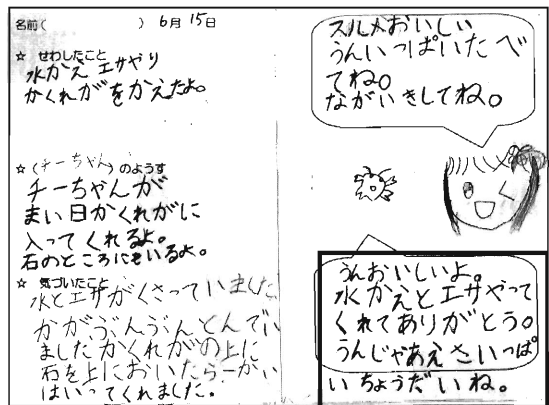 名前（　　　　　　）6月15日
☆ せわしたこと
水かえ エサやり
かくれがをかえたよ。
☆（チーちゃん）のようす
チーちゃんが
まい日かくれがに
入ってくれるよ。
石のところにもいるよ。
☆ 気づいたこと
水とエサがくさっていました
かがぶんぶんとんでい
ましたかくれがの上に
石を上においたらーがい
はいってくれました。
スルメおいしい
うんいっぱいたべ
てね。
ながいきしてね。
うんおいしいよ。
水かえとエサやって
くれてありがとう。
うんじゃあえさいっぱ
いちょうだいね。